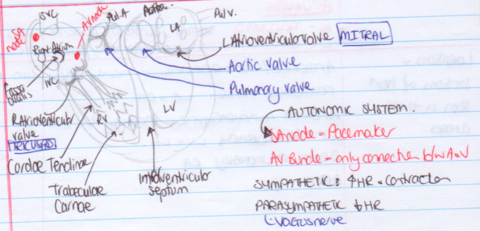 SVC
AV node
Pul.A
Aorta
Pul v.
SA node
LA
Right Atrium
L Atrioventricular valve MITRAL
Aortic valve
Fossa Ovalis
IVC
Pulmonary valve
R Atrioventricular valve
TRICUSPID
RV
LV
AUTONOMIC SYSTEM.
SA node = Pacemaker
Cordae Tendinae
AV Bundle = only connection b/w A+V
Trabeculae Carnae
Interventricular Septum
SYMPATHETIC: ↑HR + contraction
PARASYMPATHETIC ↓HR
vagus nerve